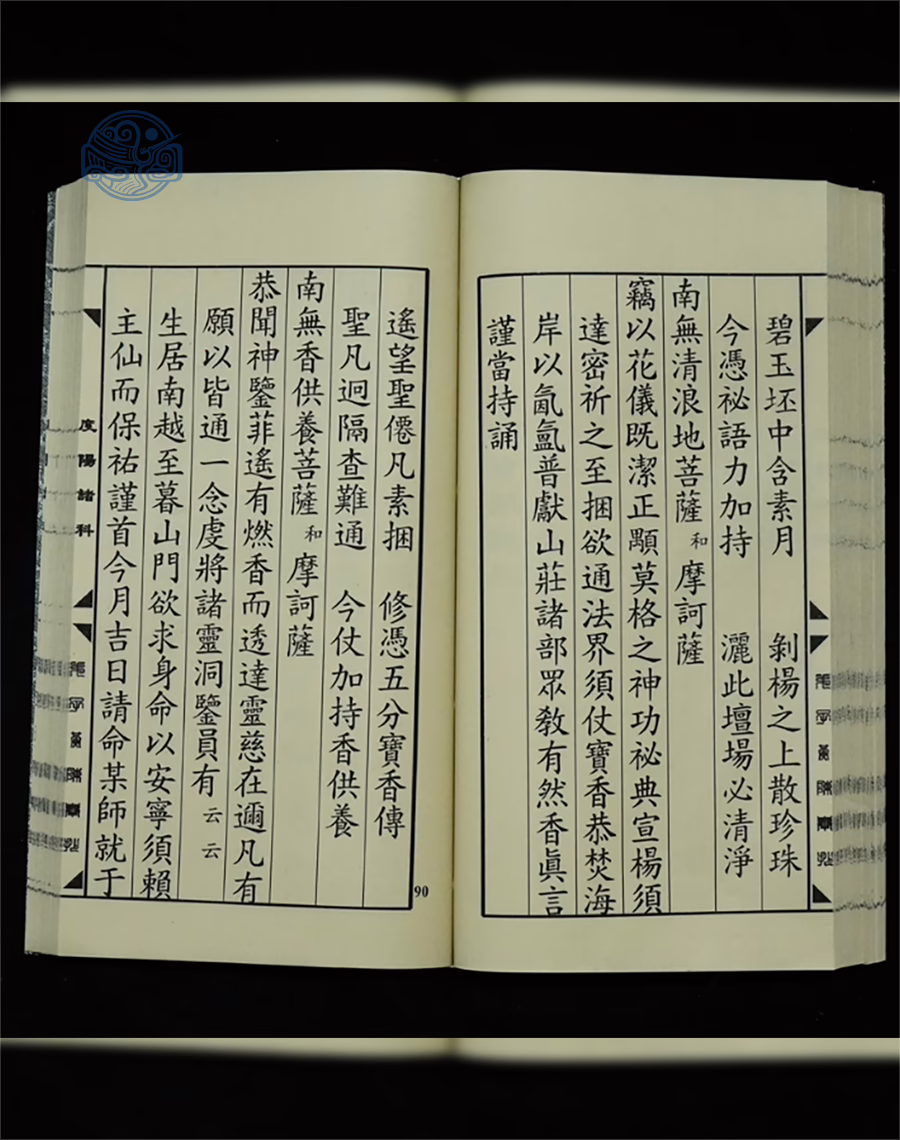 碧玉坯中含素月　剝楊之上散珍珠
今憑祕語力加持　灑此壇場必清淨
南無清浪地菩薩和摩訶薩
竊以花儀既潔正顒莫格之神功祕典宣楊須
達密祈之至捆欲通法界須仗寶香恭焚海
岸以氤氳普獻山莊諸部眾教有然香眞言
謹當持誦
遙望聖僊凡素捆　修憑五分寶香傳
聖凡迥隔查難通　今仗加持香供養
南無香供養菩薩和摩訶薩
恭聞神鑒菲遙有燃香而透達靈慈在邇凡有
願以皆通一念虔將諸靈洞鑒員有云云
生居南越至暮山門欲求身命以安寧須賴
主仙而保祐謹首今月吉日請命某師就于
度陽諸科
90